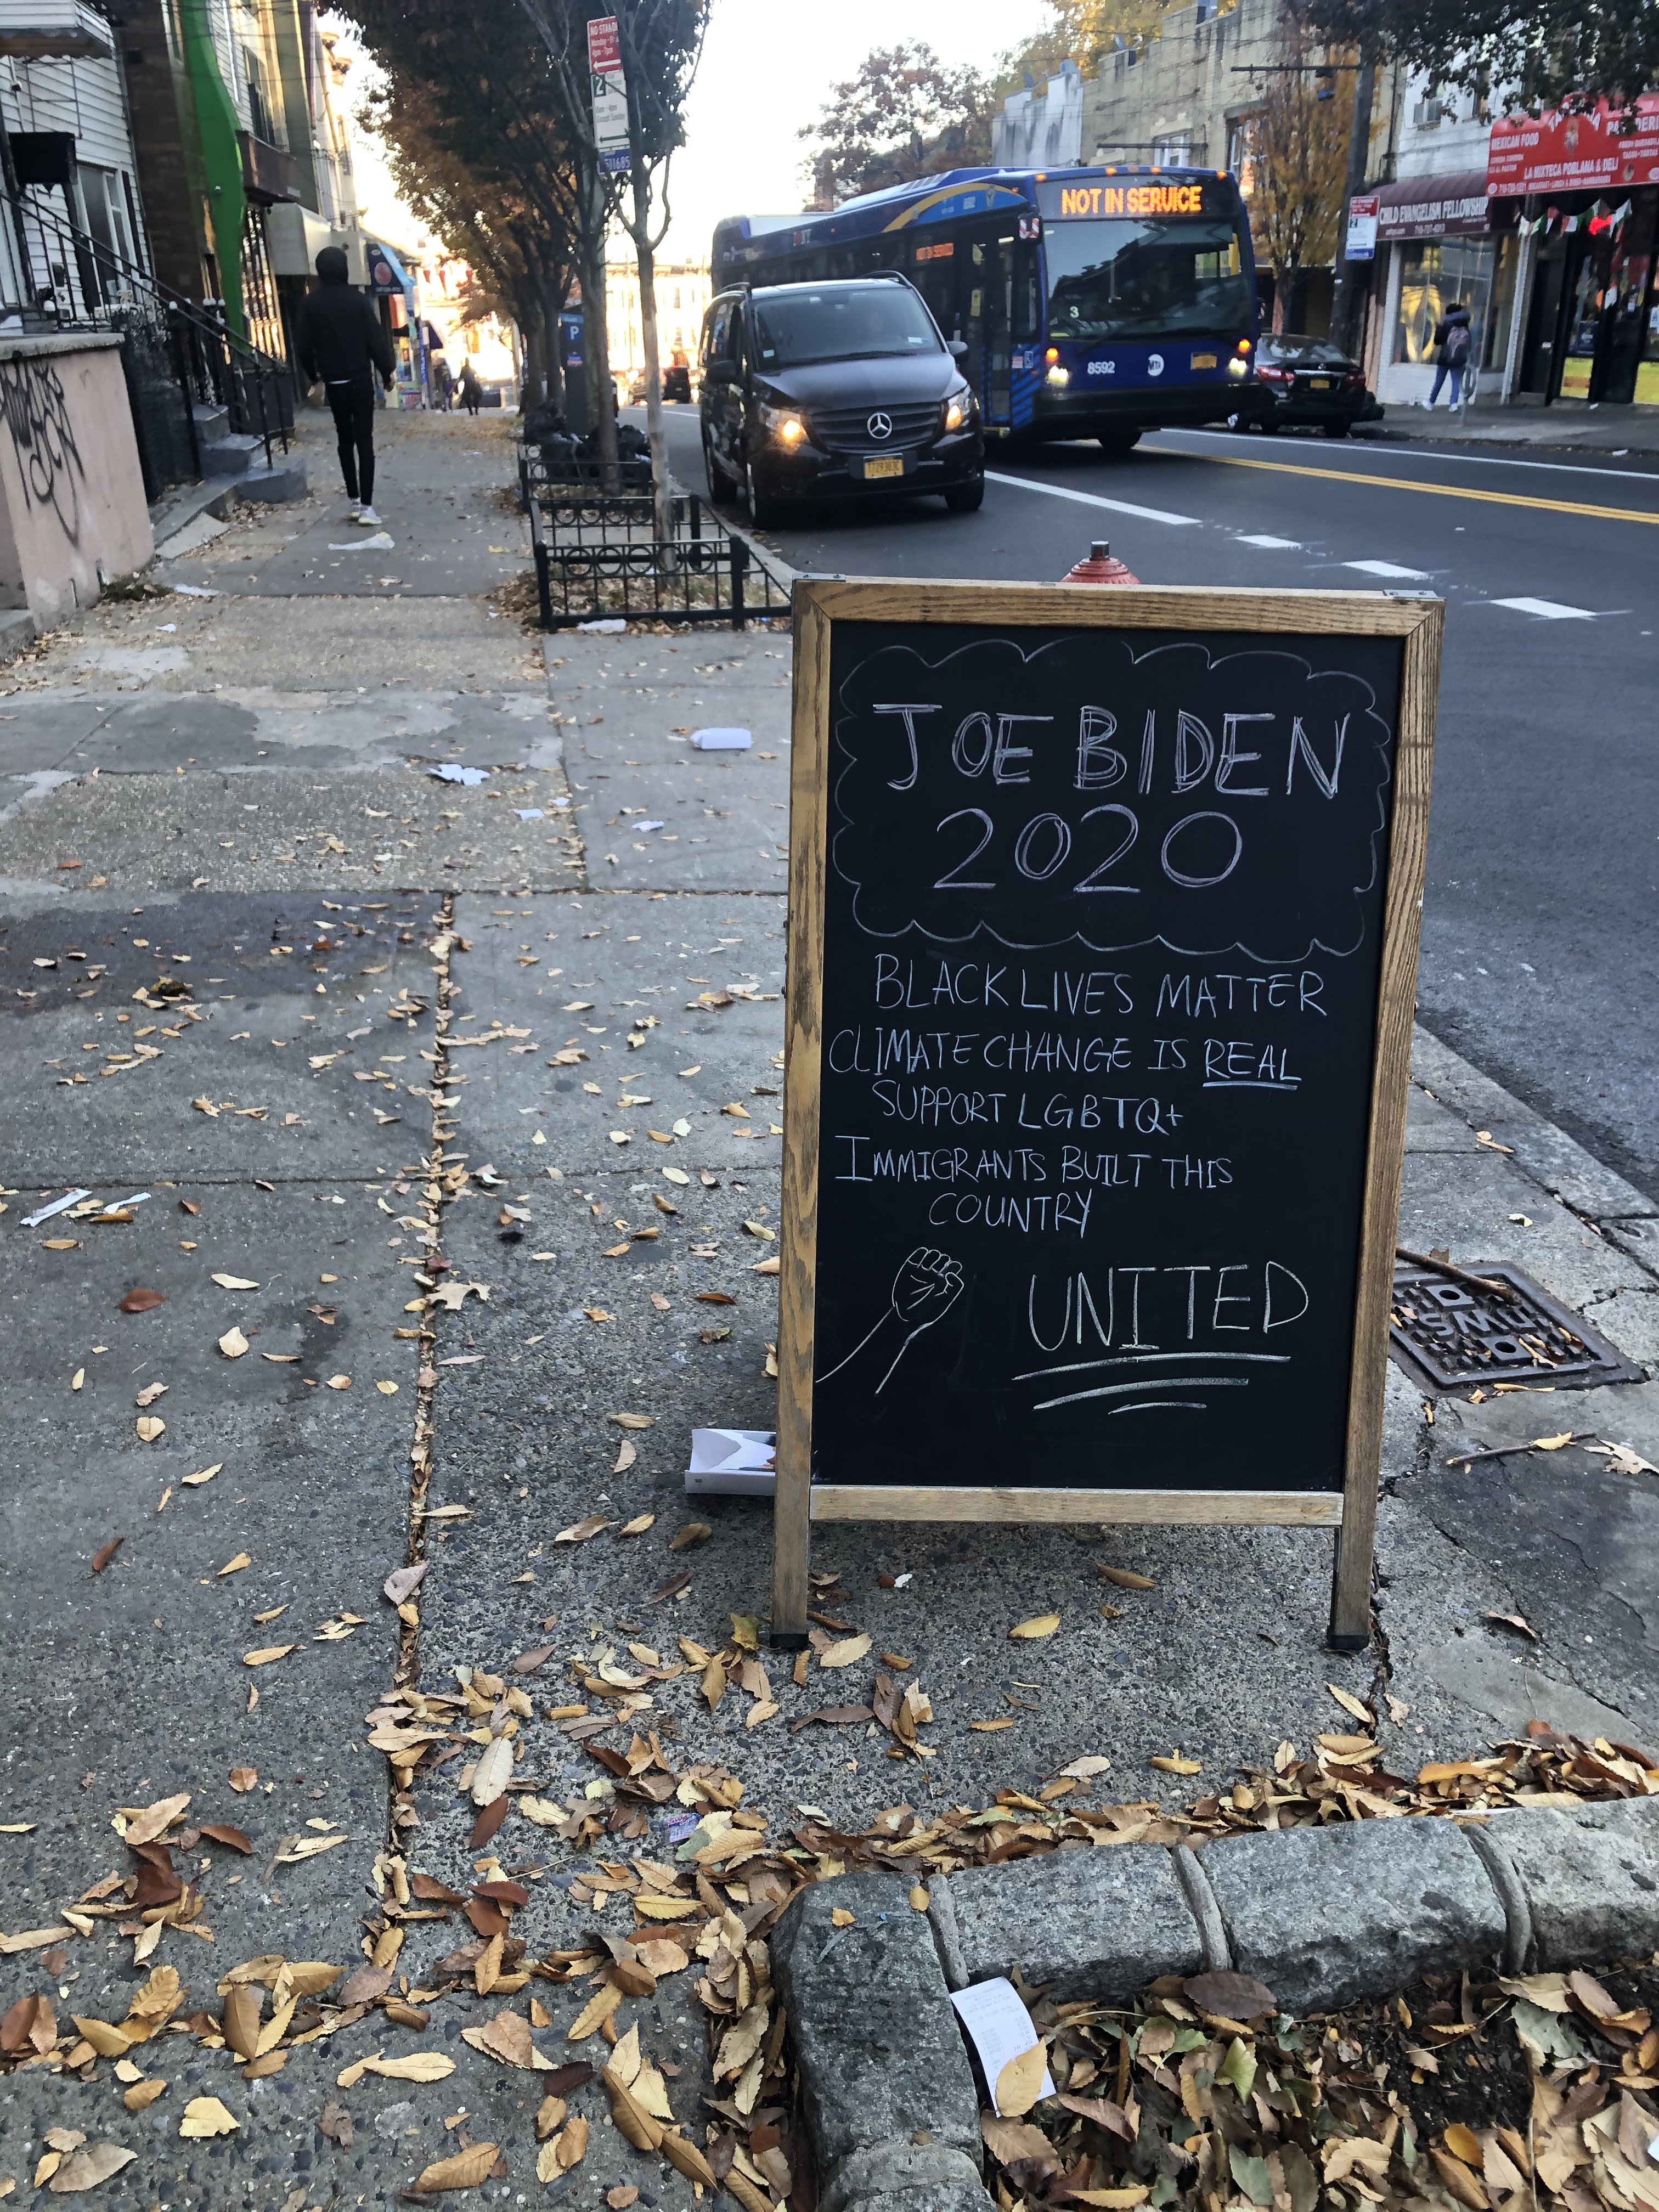 NO STANDING
NOT IN SERVICE
3
8592
MTA
MEXICAN FOOD
LA MIXTECA POBLANA & DELI
CHILD EVANGELISM FELLOWSHIP
P
JOE BIDEN
2020
BLACK LIVES MATTER
CLIMATE CHANGE IS REAL
SUPPORT LGBTQ+
IMMIGRANTS BUILT THIS
COUNTRY
UNITED